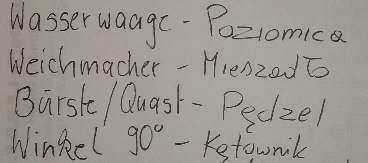 Wasserwaage - Poziomica
Weichmacher - Mieszadło
Bürste/Quast - Pędzel
Winkel 90° - Kątownik